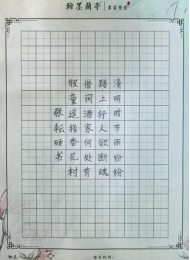 翰墨蘭亭
清明时节雨纷纷
路上行人欲断魂
借问酒家何处有
牧童遥指杏花村
张耘硕书